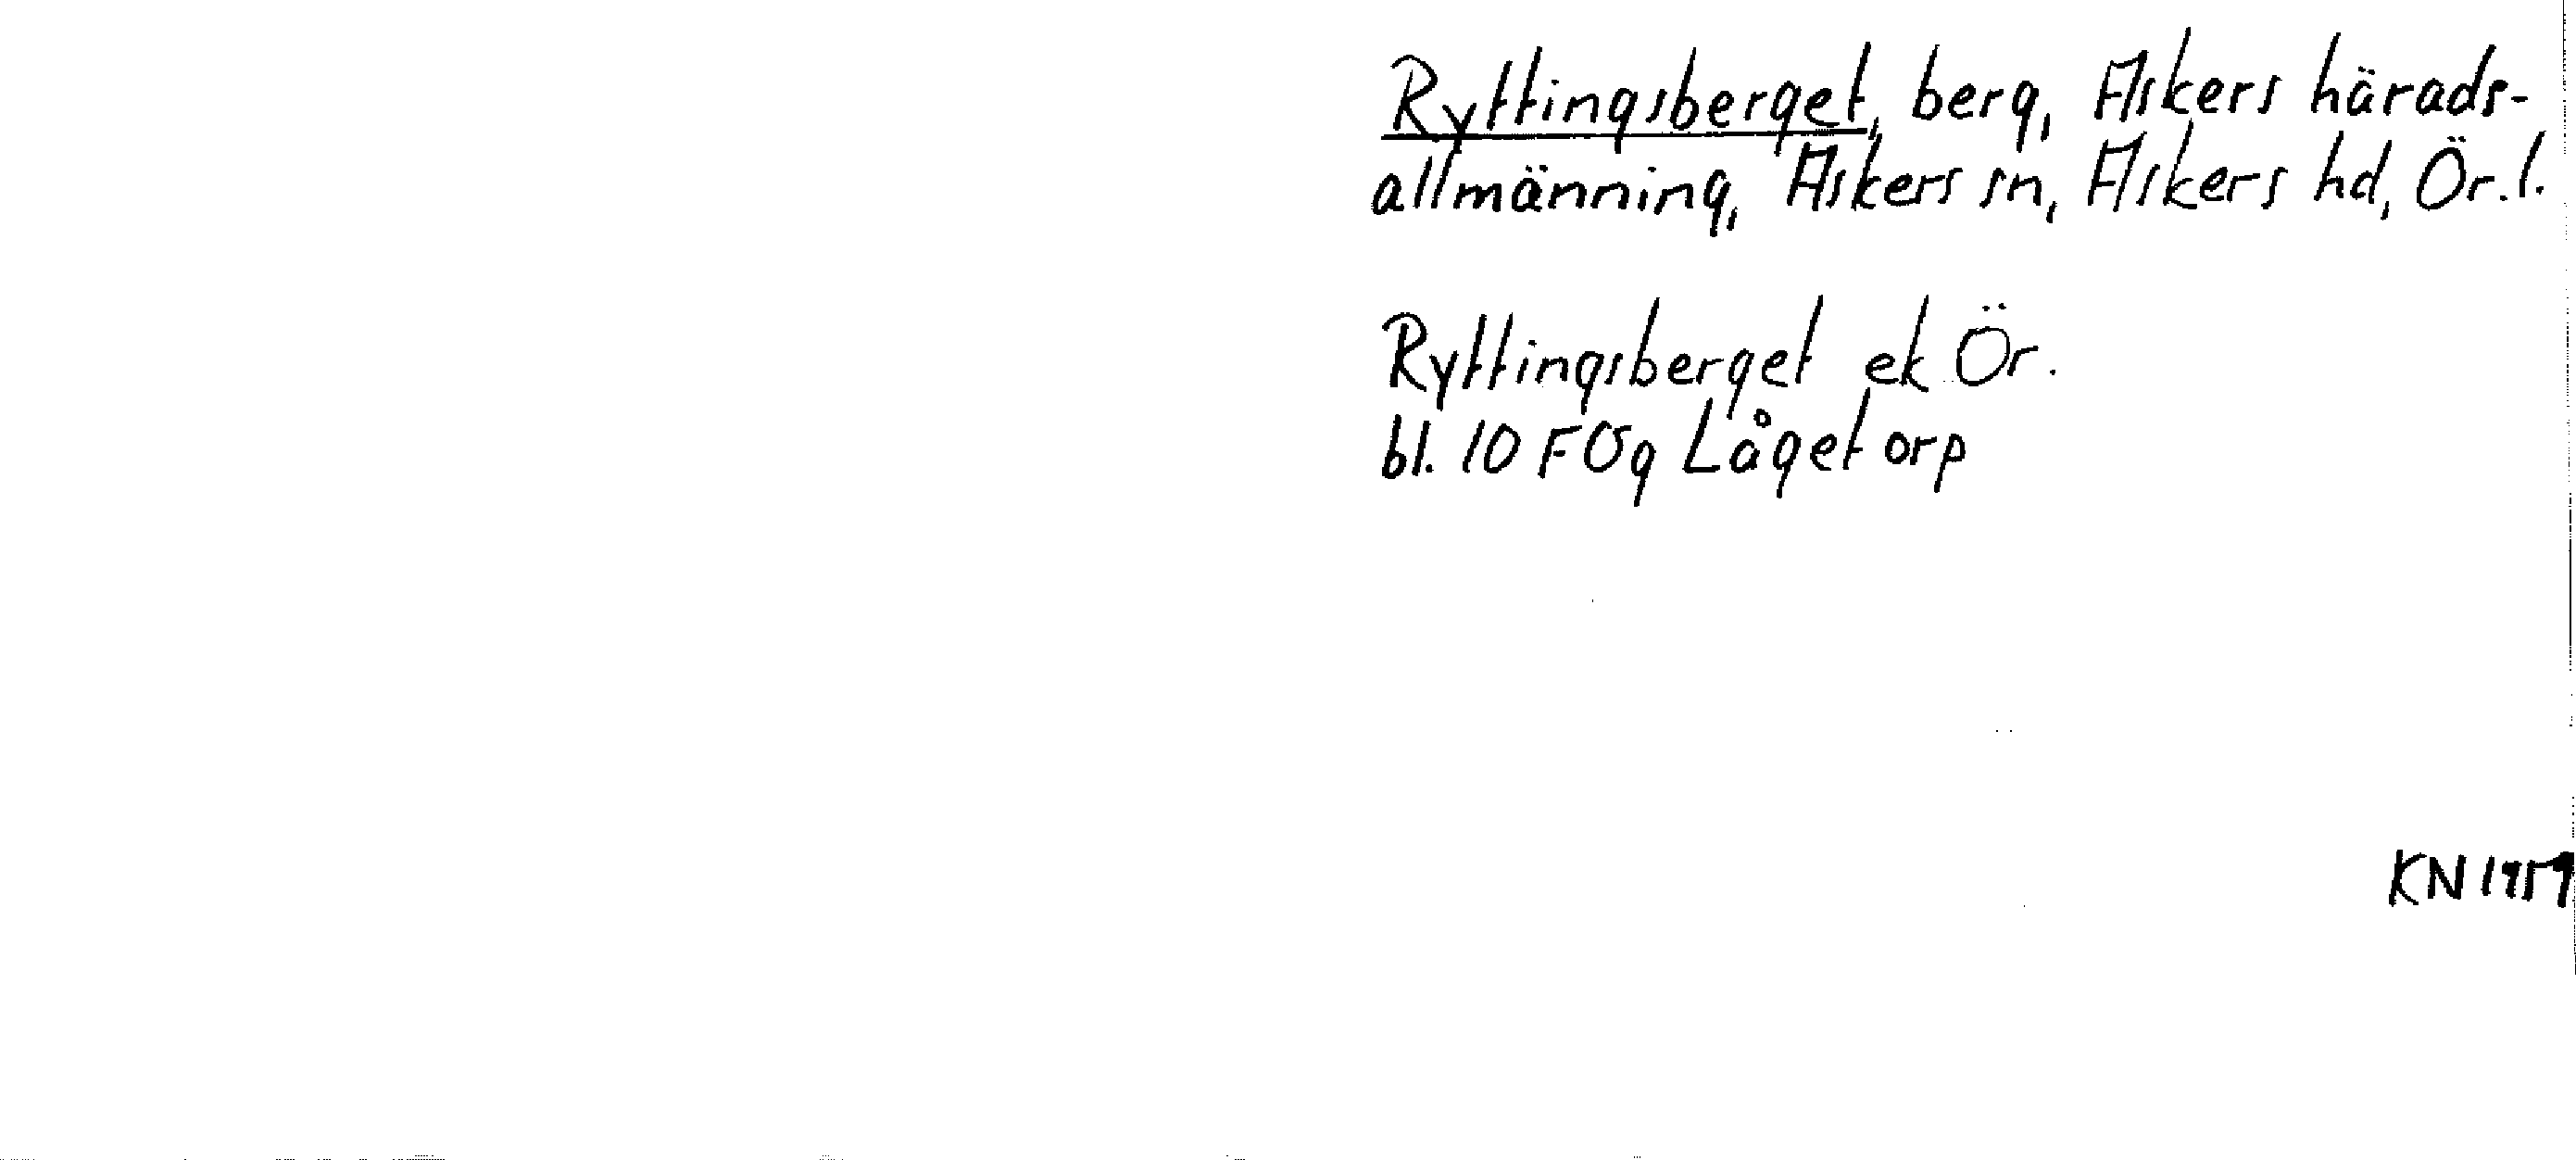 Ryttingsberget, berg, Askers härads-
allmänning, Askers sn, Askers hd, Ör.l.
Ryttingsberget ek Ör.
bl. 10 F0g Lågetorp
KN 1959